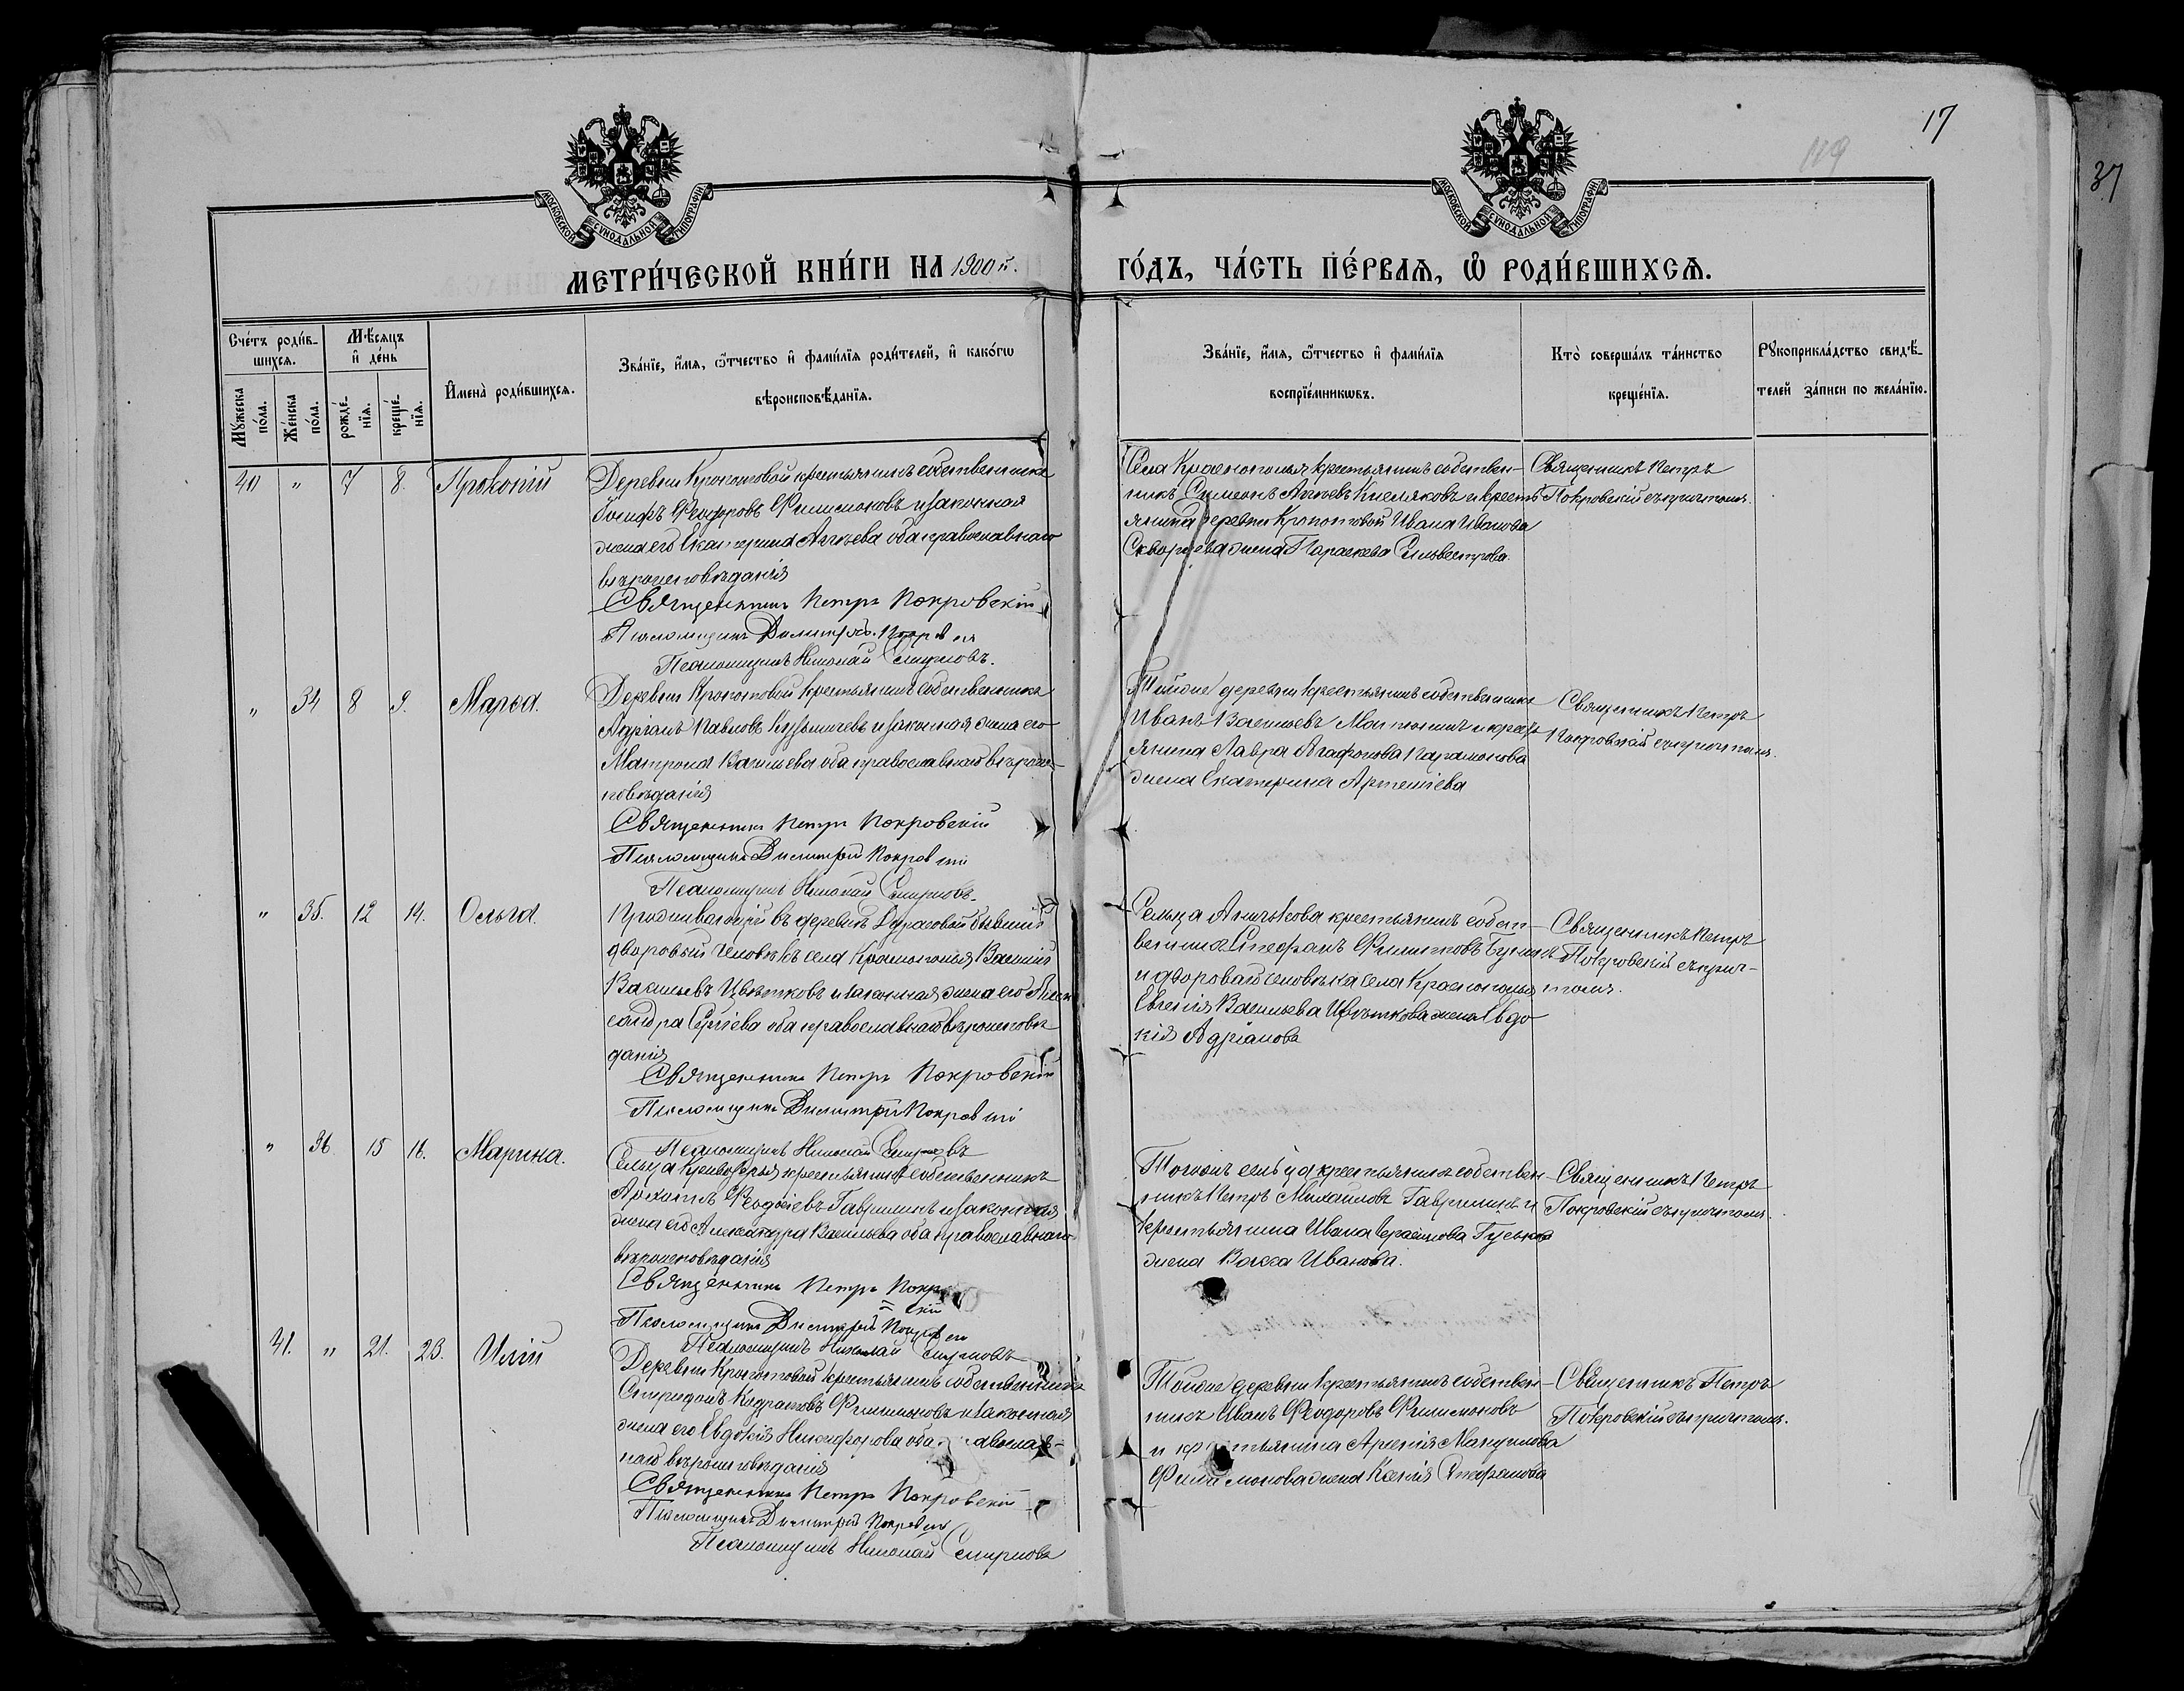 17
119
37
МОСКОВСКОЙ СУНОДАЛЬНОЙ ТИПОГРАФІИ
МОСКОВСКОЙ СУНОДАЛЬНОЙ ТИПОГРАФІИ
МЕТРИ́ЧЕСКОЙ КНИ́ГИ НА 1900 й.
ГО́ДЪ, ЧА́СТЬ ПЕ́РВАЯ, Ѡ҆ РОДИ́ВШИХСѦ.
Сче́тъ роди́в-
шихся.
Мꙋ́жеска по́ла.
Же́нска по́ла.
Мѣ́сяцъ
и҆ де́нь
рожде́-
нїѧ.
креще́-
нїѧ.
И҆мена̀ роди́вшихсѧ.
Зва́нїе, и҆́мѧ, ѻ҆́тчество и҆ фами́лїѧ роди́телей, и҆ како́гѡ
вѣроисповѣ́данїѧ.
Зва́нїе, и҆́мѧ, ѻ҆́тчество и҆ фами́лїѧ
воспрїе́мникѡвъ.
Кто̀ соверша́лъ та́инство
креще́нїѧ.
Рꙋкоприкла́дство свидѣ́-
телей за́писи по жела́нїю.
40 " 7 8. Прокопій
Деревни Кропотовой крестьянинъ собственникъ
Іосифъ Ѳеодоровъ Филимоновъ и законная
жена его Екатерина Агѣева оба православнаго
вѣроисповѣданія
Священникъ Петръ Покровскій
Псаломщикъ Димитрій
Псаломщикъ Николай Смирновъ.
Села Краснополья крестьянинъ собствен-
никъ Симеонъ Агѣевъ Кисляковъ и кресть
янина деревни Кропотовой Ивана Иванова
Скворцева жена Параскева Сильвестрова.
Священникъ Петръ
Покровскій съ причтомъ.
" 34 8 9. Марѳа.
Деревни Кропотовой крестьянинъ собственникъ
Адріанъ Павловъ Кузьмичевъ и законная жена его
Матрона Васильева оба православнаго вѣроис-
повѣданія
Священникъ Петръ Покровскій
Псаломщикъ Димитрій Покровскій
Псаломщикъ Николай Смирновъ.
Тойже деревни крестьянинъ собственникъ
Иванъ Васильевъ и кресть
янина Лавра Агафонова Парамонова
жена Екатерина Артемiева
Священникъ Петръ
Покровскій съ причтомъ.
" 35. 12 14. Ольга.
Проживающій въ деревнѣ бывшій
дворовый человѣкъ села Краснополья Василій
Васильевъ Цвѣтковъ и законная жена его Алек
сандра Сергіева оба православнаго вѣроисповѣ
данія
Священникъ Петръ Покровскій
Псаломщикъ Димитрій Покровскій
Псаломщикъ Николай Смирновъ
Сельца Аничкова крестьянинъ собст-
венникъ Стефанъ Филипповъ
и двороваго человѣка села Краснополья
Евгенія Васильева Цвѣткова жена Евдо
кія Адріанова
Священникъ Петръ
Покровскій съ прич-
томъ.
" 36 15 16. Марина.
Сельца крестьянинъ собственникъ
Архипъ Гаврилинъ и законная
жена его Александра Васильева оба православнаго
вѣроисповѣданія
Священникъ Петръ
Псаломщикъ Димитрій Покровскій
Псаломщикъ Николай Смирновъ
Тогожъ сельца крестьянинъ собствен-
никъ Петръ Михайловъ Гаврилинъ и
крестьянина Ивана Герасимова Гуськова
жена Васса Иванова.
Священникъ Петръ
Покровскій съ причтомъ.
41. " 21. 23. Илій
Деревни Кропотовой крестьянинъ собственникъ
Спиридонъ Кодратовъ Филимоновъ и законная
жена его Евдокія Никифорова оба
наго вѣроисповѣданія
Священникъ Петръ Покровскій
Псаломщикъ Димитрій Покровскій
Псаломщикъ Николай Смирновъ
Тойже деревни крестьянинъ собствен-
никъ Иванъ Ѳеодоровъ Филимоновъ
и Арсенія Мануилова
Филимонова жена Ксенія Стефанова
Священникъ Петръ
Покровскій съ причтомъ.